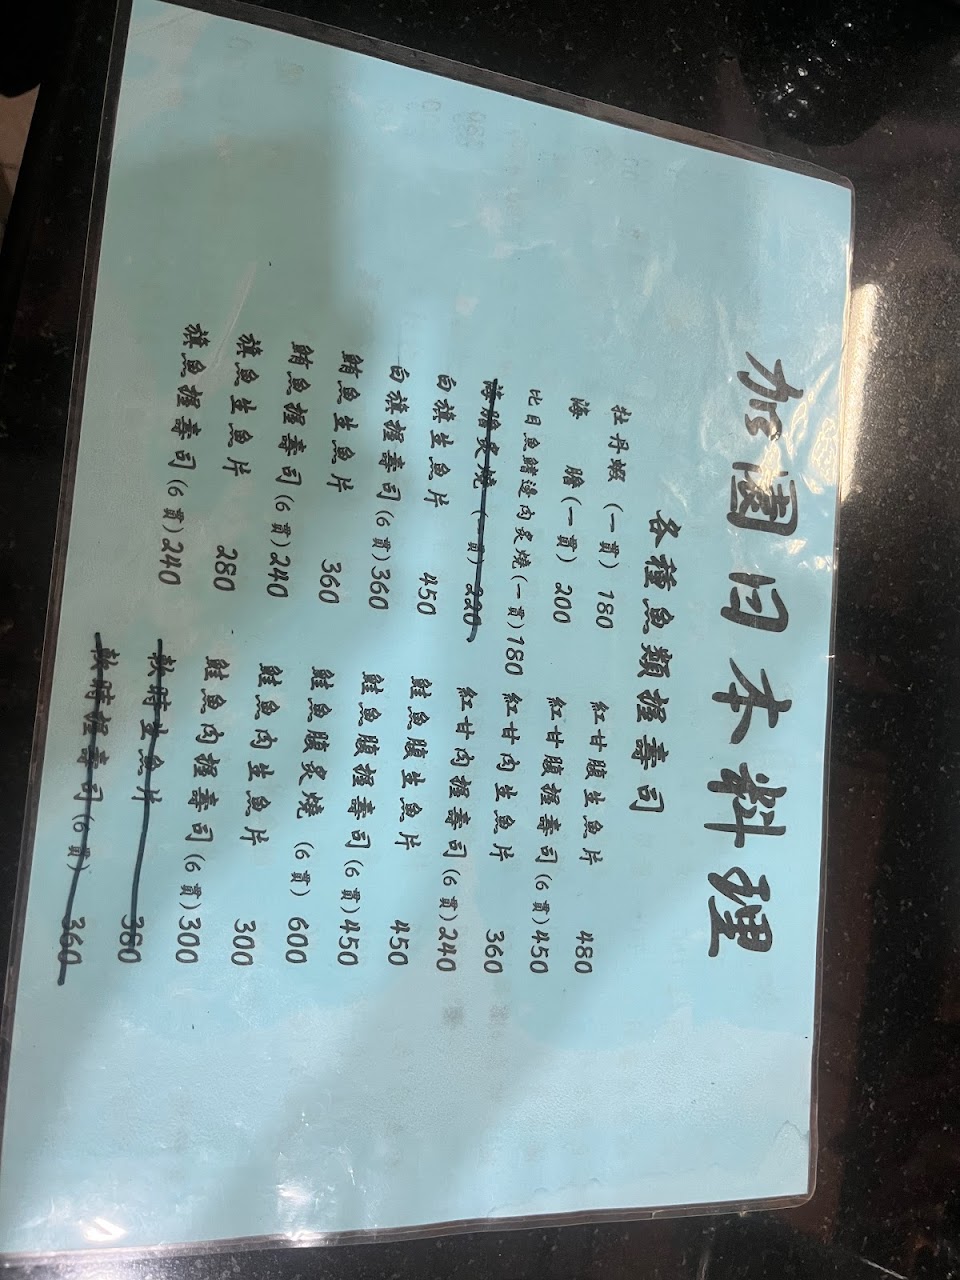 加園日本料理
各種魚類握壽司
牡丹蝦 (一貫) 180
海膽 (一貫) 200
比目魚鰭邊肉炙燒 (一貫) 180
海膽炙燒 (一貫) 220
白旗生魚片 450
白旗握壽司 (6貫) 360
鮪魚生魚片 360
鮪魚握壽司 (6貫) 240
旗魚生魚片 280
旗魚握壽司 (6貫) 240
紅甘腹生魚片 480
紅甘腹握壽司 (6貫) 450
紅甘肉生魚片 360
紅甘肉握壽司 (6貫) 240
鮭魚腹生魚片 450
鮭魚腹握壽司 (6貫) 450
鮭魚腹炙燒 (6貫) 600
鮭魚肉生魚片 300
鮭魚肉握壽司 (6貫) 300
軟時生魚片 360
軟時握壽司 (6貫) 360